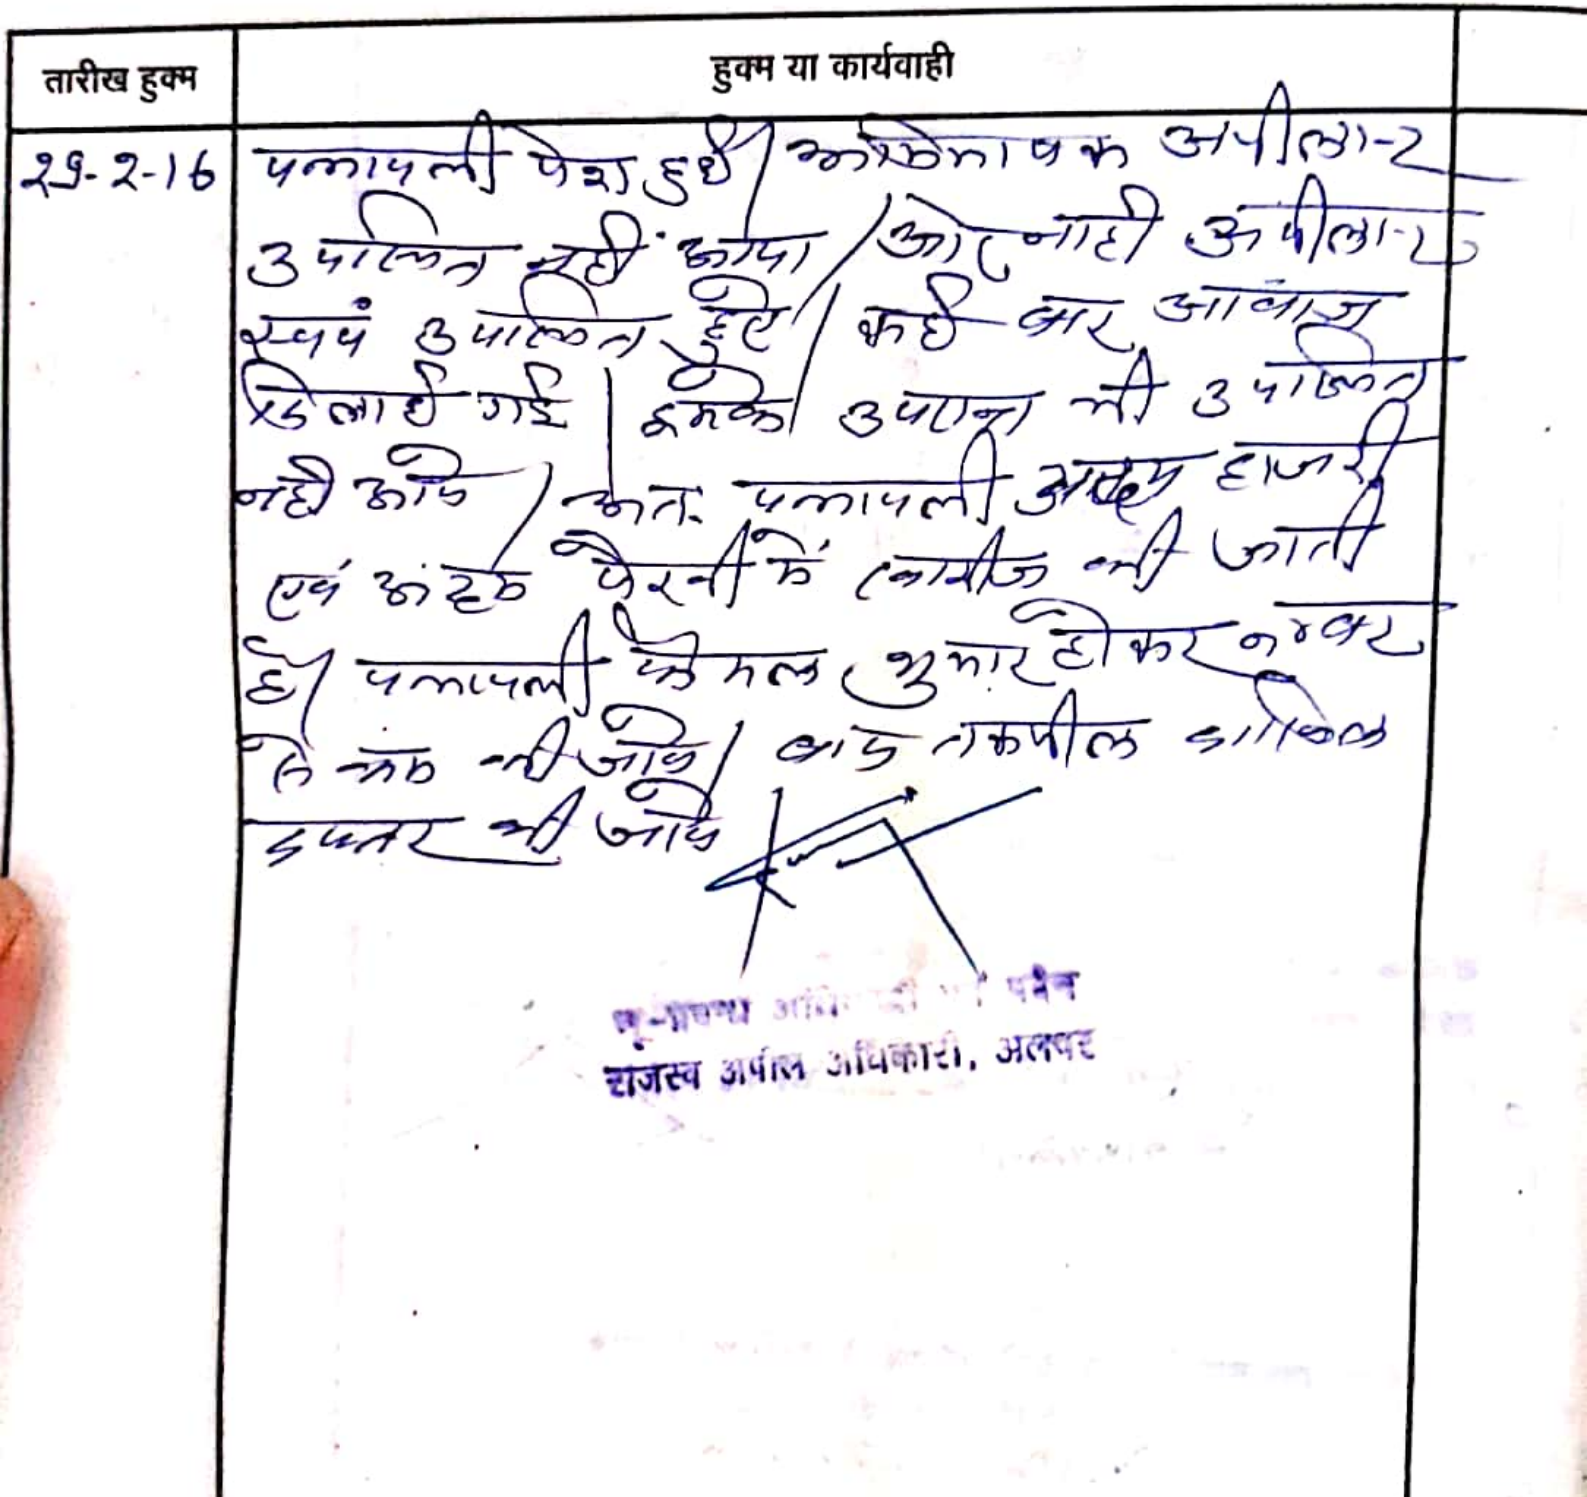 तारीख हुक्म
हुक्म या कार्यवाही
29-2-16
पत्रावली पेश हुई। अभिभाषक अपीलान्ट
उपस्थित नहीं आया। और नाही अपीलान्ट
स्वयं उपस्थित हुऐ। कई बार आवाज
दिलाई गई। इसके उपरान्त भी उपस्थित
नही आये। अतः पत्रावली अदम हाजरी
एवं अदम पैरवी में खारीज की जाती
है। पत्रावली फैसल शुमार होकर नम्बर
से कम की जावे। बाद तकमील दाखिल
दफ्तर की जावे
भू-प्रबन्ध पदेन
राजस्व अपील अधिकारी, अलवर